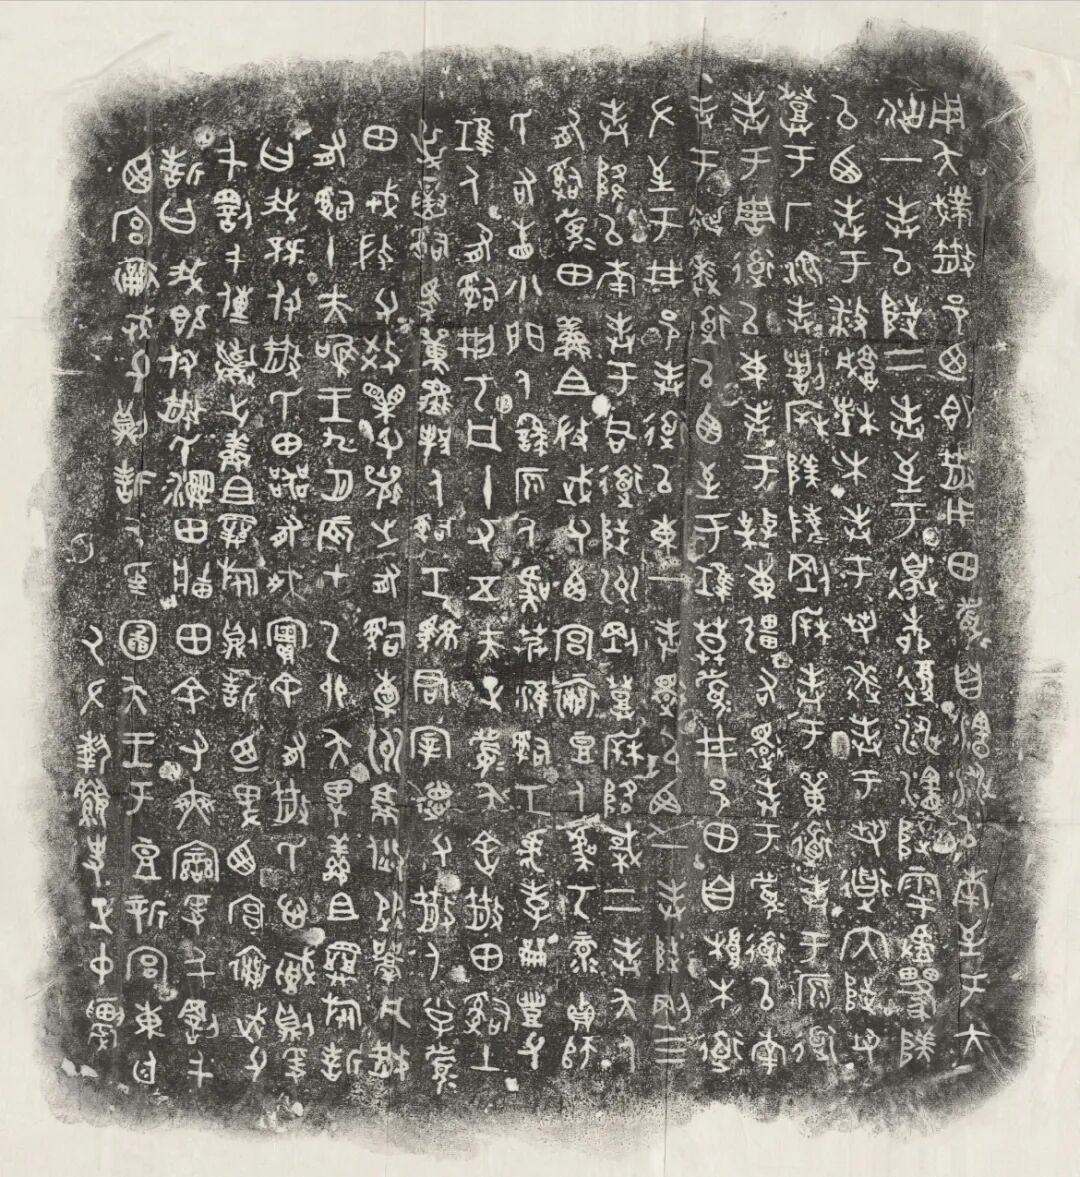 用夨撲散邑乃即散用田眉自瀗涉以南至于大
沽一封以陟二封至于邊柳復涉瀗陟雩
以西封于播城楮木封于芻逨封于芻道内陟芻
登于厂湶封諸陵剛封于單道封于原道
封于周道以東封于東疆右還封于眉道以南
封于逨道以西至于堆莫眉井邑田自根木道
左至于井邑封道以東一封還以西一封陟剛三
封降以南封于同道陟州剛登降棫二封夨人
有司眉田鮮且微武父西宮襄豆人虞丂彔貞師
氏右眚小門人繇原人虞艿淮司工虎孝龠豐父
堆人有司刑丂凡十又五夫正眉夨舍散田司土
逆寅司馬單邦人司工駷君宰德父散人小子眉
田戎微父效櫐父襄之有司橐州就焂從凡散
有司十夫唯王九月辰才乙卯夨卑鮮且旅誓
曰我既付散氏田器有爽實余有散氏心賊則爰
千罰千傳棄之鮮且旅則誓乃卑西宮襄武父
誓曰我既付散氏濕田畛田余又爽變爰千罰千
西宮襄武父則誓厥受圖夨王于豆新宮東廷
厥左執要史正中農